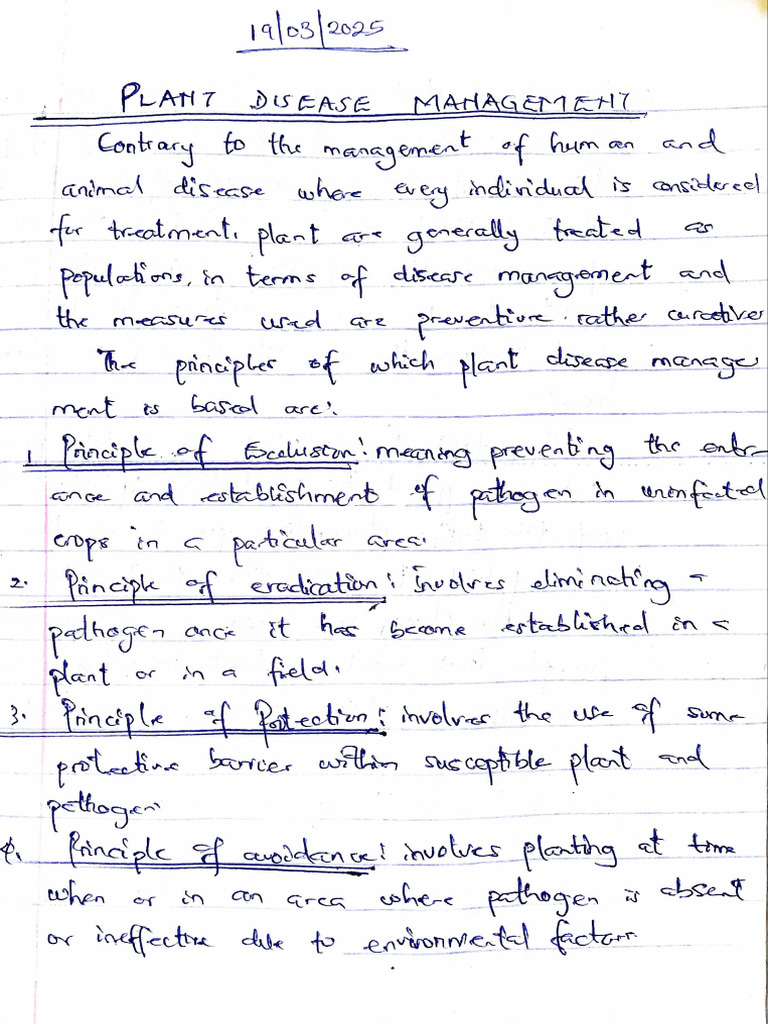 19/03/2025
PLANT DISEASE MANAGEMENT
Contrary to the management of human and
animal disease where every individual is considered
for treatment, plant are generally treated as
populations, in terms of disease management and
the measures used are preventive rather curatives
The principles of which plant disease manage
ment is based are:
1 Principle of Exclusion: meaning preventing the entr-
ance and establishment of pathogen in uninfected
crops in a particular area.
2. Principle of eradication: Involves eliminating a
pathogen once it has become established in a
plant or in a field.
3. Principle of Protection: involves the use of some
protective barrier within susceptible plant and
pathogen
4. Principle of avoidance: involves planting at time
when or in an area where pathogen is absent
or ineffective due to environmental factors